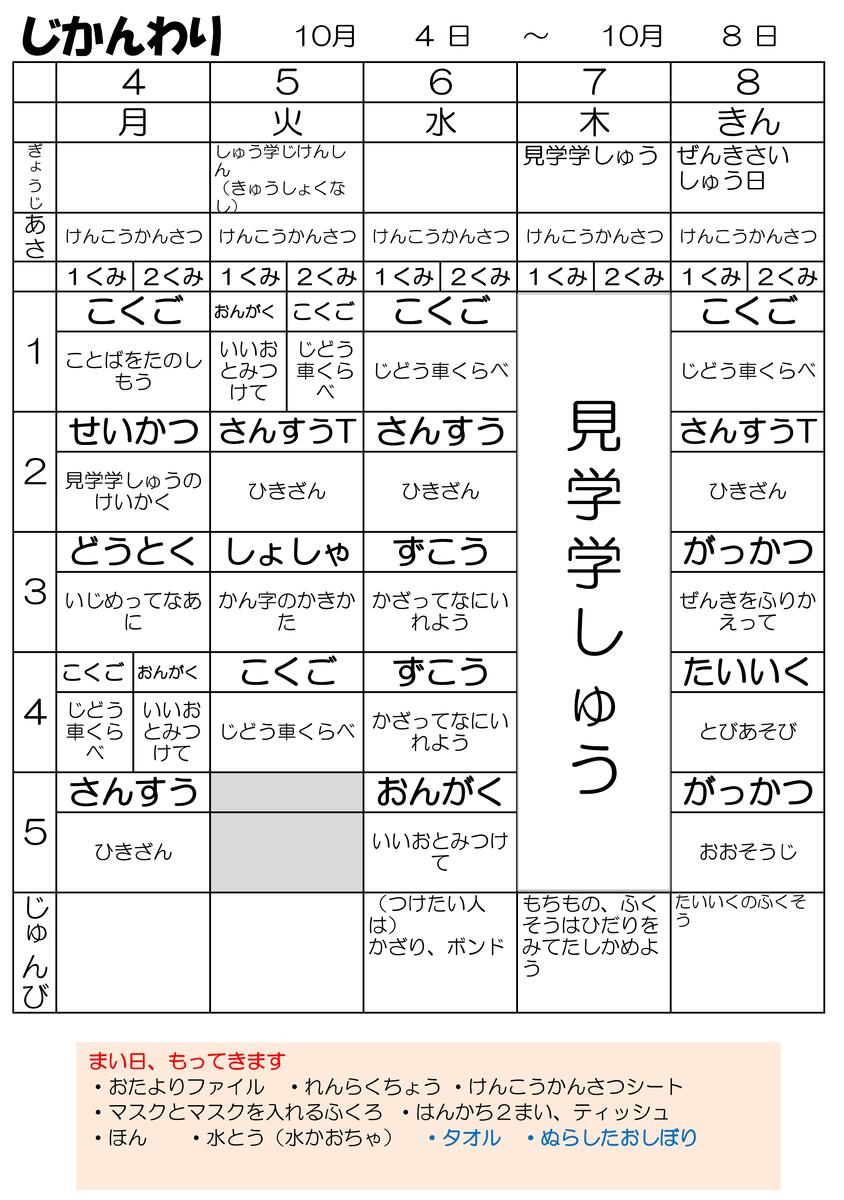 じかんわり 10月 4 日 ～ 10月 8 日
4 5 6 7 8
月 火 水 木 きん
ぎょうじ
しゅう学じけんし
ん
（きゅうしょくな
し）
見学学しゅう
ぜんきさい
しゅう日
あさ
けんこうかんさつ けんこうかんさつ けんこうかんさつ けんこうかんさつ けんこうかんさつ
1くみ 2くみ 1くみ 2くみ 1くみ 2くみ 1くみ 2くみ 1くみ 2くみ
1
こくご おんがく こくご こくご こくご
ことばをたのし
もう
いいお
とみつ
けて
じどう
車くら
べ
じどう車くらべ
じどう車くらべ
見学学しゅう
2
せいかつ さんすうT さんすう さんすうT
見学学しゅうの
けいかく
ひきざん
ひきざん
ひきざん
3
どうとく しょしゃ ずこう がっかつ
いじめってなあ
に
かん字のかきか
た
かざってなにい
れよう
ぜんきをふりか
えって
4
こくご おんがく こくご ずこう たいいく
じどう
車くら
べ
いいお
とみつ
けて
じどう車くらべ
かざってなにい
れよう
とびあそび
5
さんすう おんがく がっかつ
ひきざん
いいおとみつけ
て
おおそうじ
じゅんび
（つけたい人
は）
かざり、ボンド
もちもの、ふく
そうはひだりを
みてたしかめよ
う
たいいくのふくそ
う
まい日、もってきます
・おたよりファイル ・れんらくちょう ・けんこうかんさつシート
・マスクとマスクを入れるふくろ ・はんかち2まい、ティッシュ
・ほん ・水とう（水かおちゃ） ・タオル ・ぬらしたおしぼり